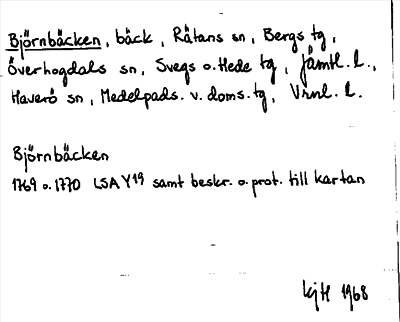 Björnbäcken, bäck, Råtans sn, Bergs tg,
Överhogdals sn, Svegs o. Hede tg, Jämtl. l.,
Haverö sn, Medelpads. v. doms. tg, Vrnl. l.
Björnbäcken
1769 o. 1770 LSA Y19 samt beskr. o. prot. till kartan
KjH 1968